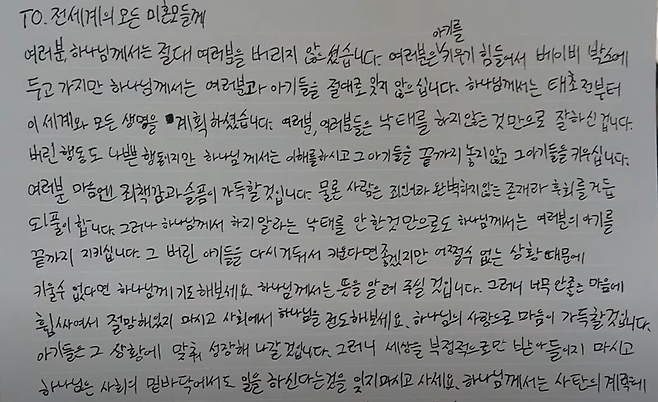 TO. 전세계의 모든 미혼모들께
여러분, 하나님께서는 절대 여러분을 버리지 않으셨습니다. 여러분은 아기를 키우기 힘들어서 베이비 박스에
두고 가지만 하나님께서는 여러분과 아기들을 절대로 잊지 않으십니다. 하나님께서는 태초전부터
이 세계와 모든 생명을 계획하셨습니다. 여러분, 여러분들은 낙태를 하지않는것만으로 잘하신 겁니다.
버린행동도 나쁜 행동이지만 하나님께서는 이해를하시고 그아기들을 끝까지 놓지않고 그아기들을 키우십니다.
여러분 마음엔 죄책감과 슬픔이 가득할것입니다. 물론 사람은 죄인이라 완벽하지않는 존재라 후회를 거듭
되풀이 합니다. 그러나 하나님께서 하지말라는 낙태를 안한것만으로도 하나님께서는 여러분의 아기를
끝까지 지키십니다. 그 버린 아기들을 다시 거둬서 키운다면좋겠지만 어쩔수 없는 상황때문에
키울수 없다면 하나님께 기도해보세요. 하나님께서는 뜻을 알려 주실 것입니다. 그러니 너무 안좋은 마음에
휩싸여서 절망해있지 마시고 사회에서 하나님을 전도해보세요. 하나님의 사랑으로 마음이 가득할것입니다.
아기들은 그 상황에 맞춰 성장해 나갈것입니다. 그러니 세상을 부정적으로만 받아들이지 마시고
하나님은 사회의 밑바닥에서도 일을 하신다는것을 잊지마시고 사세요. 하나님께서는 사탄의 계략에